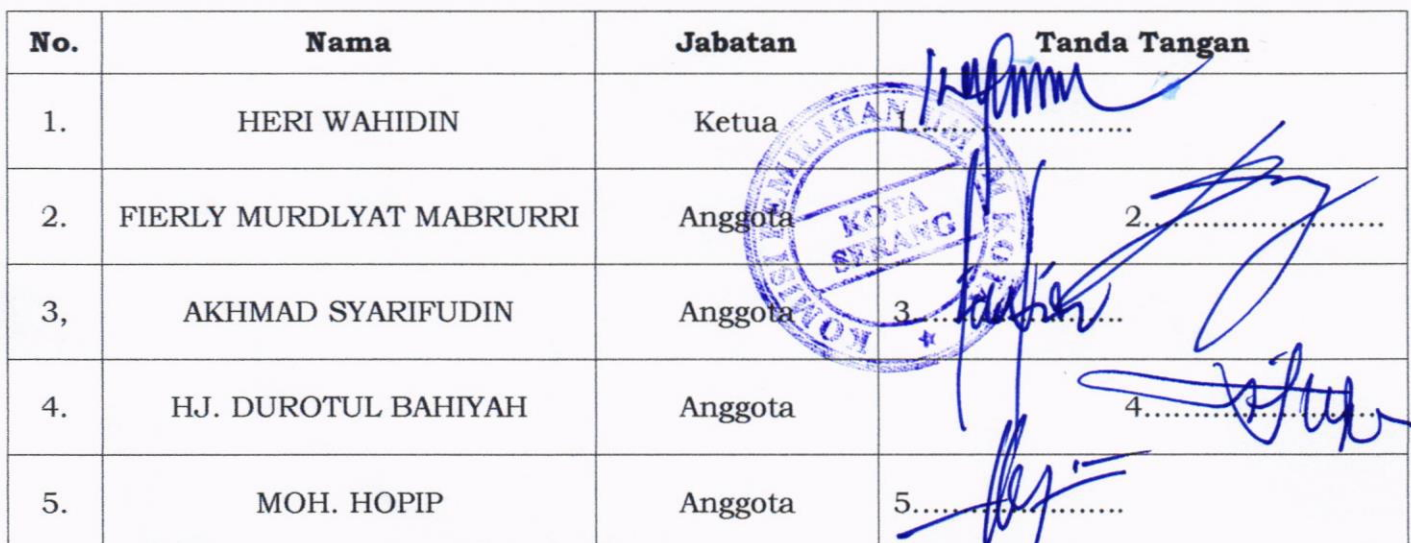 No. Nama Jabatan Tanda Tangan
1. HERI WAHIDIN Ketua 1.......................
2. FIERLY MURDLYAT MABRURRI Anggota 2.........................
3, AKHMAD SYARIFUDIN Anggota 3.......................
4. HJ. DUROTUL BAHIYAH Anggota 4.........................
5. MOH. HOPIP Anggota 5.......................
KOMISI PEMILIHAN UMUM KOTA
KOTA
SERANG